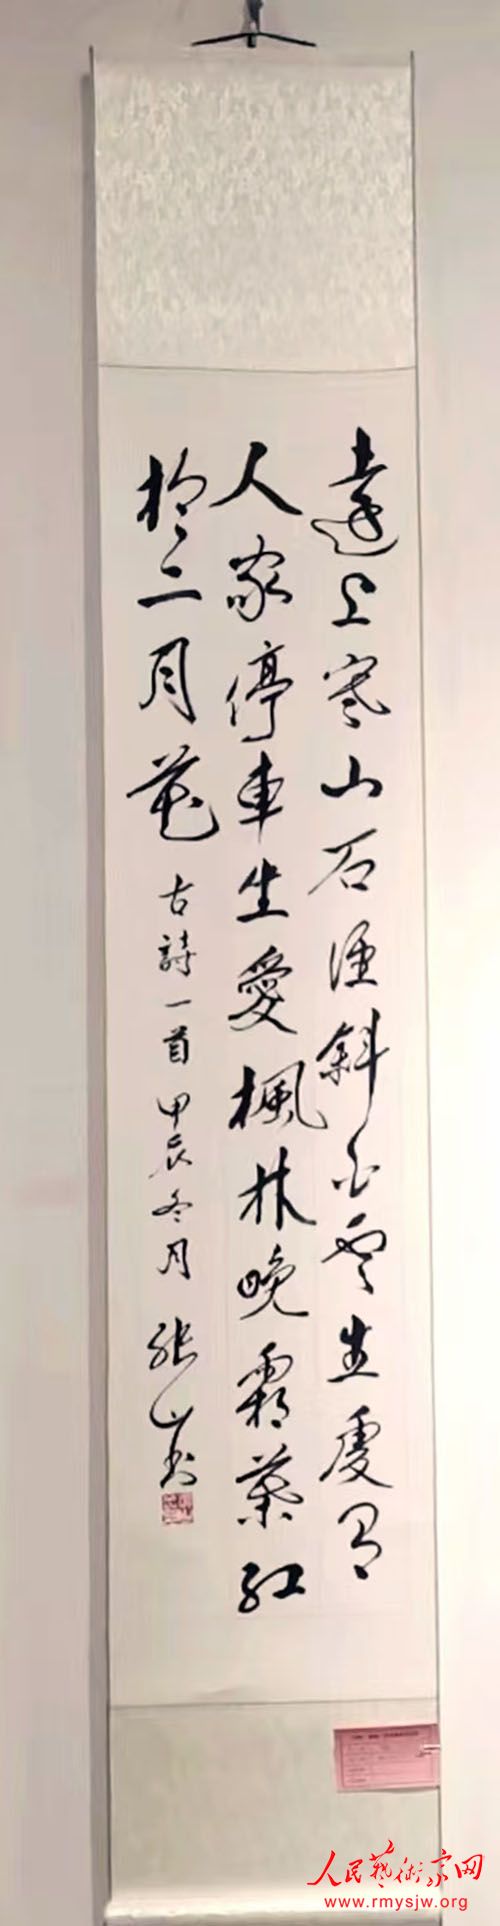 遠上寒山石徑斜白雲生處有
人家停車坐愛楓林晚霜葉紅
於二月花 古詩一首 甲辰冬月 張
人民藝術家网
www.rmysjw.org